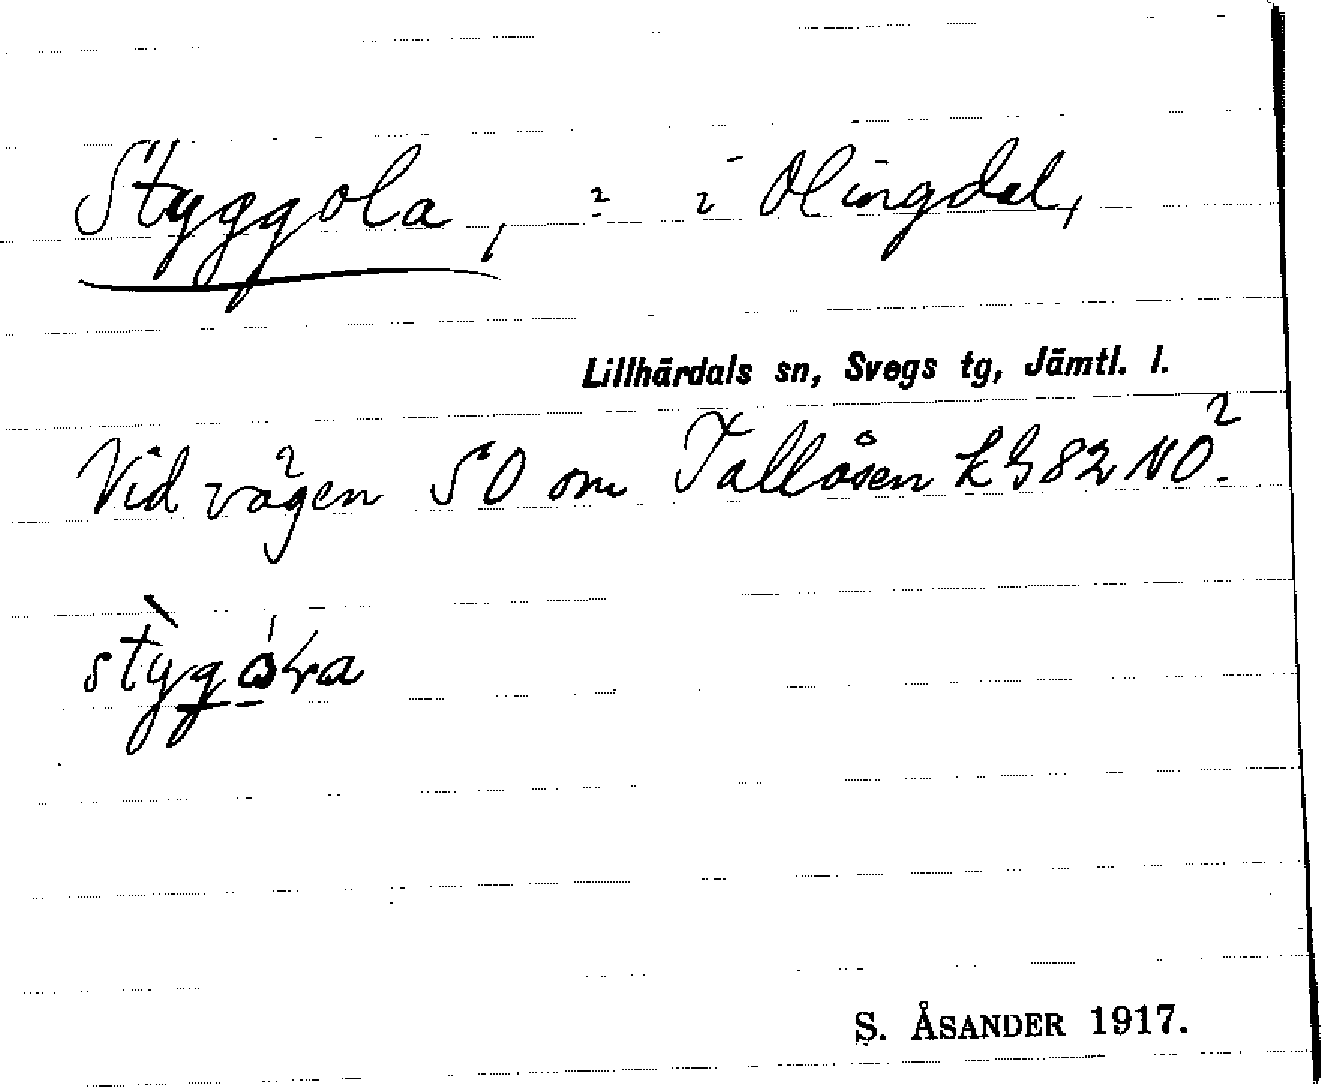 Styggola, ? i Olingdal,
Lillhärdals sn, Svegs tg, Jämtl. l.
Vid vägen SO om Tallåsen LG82NO?
S. ÅSANDER 1917.